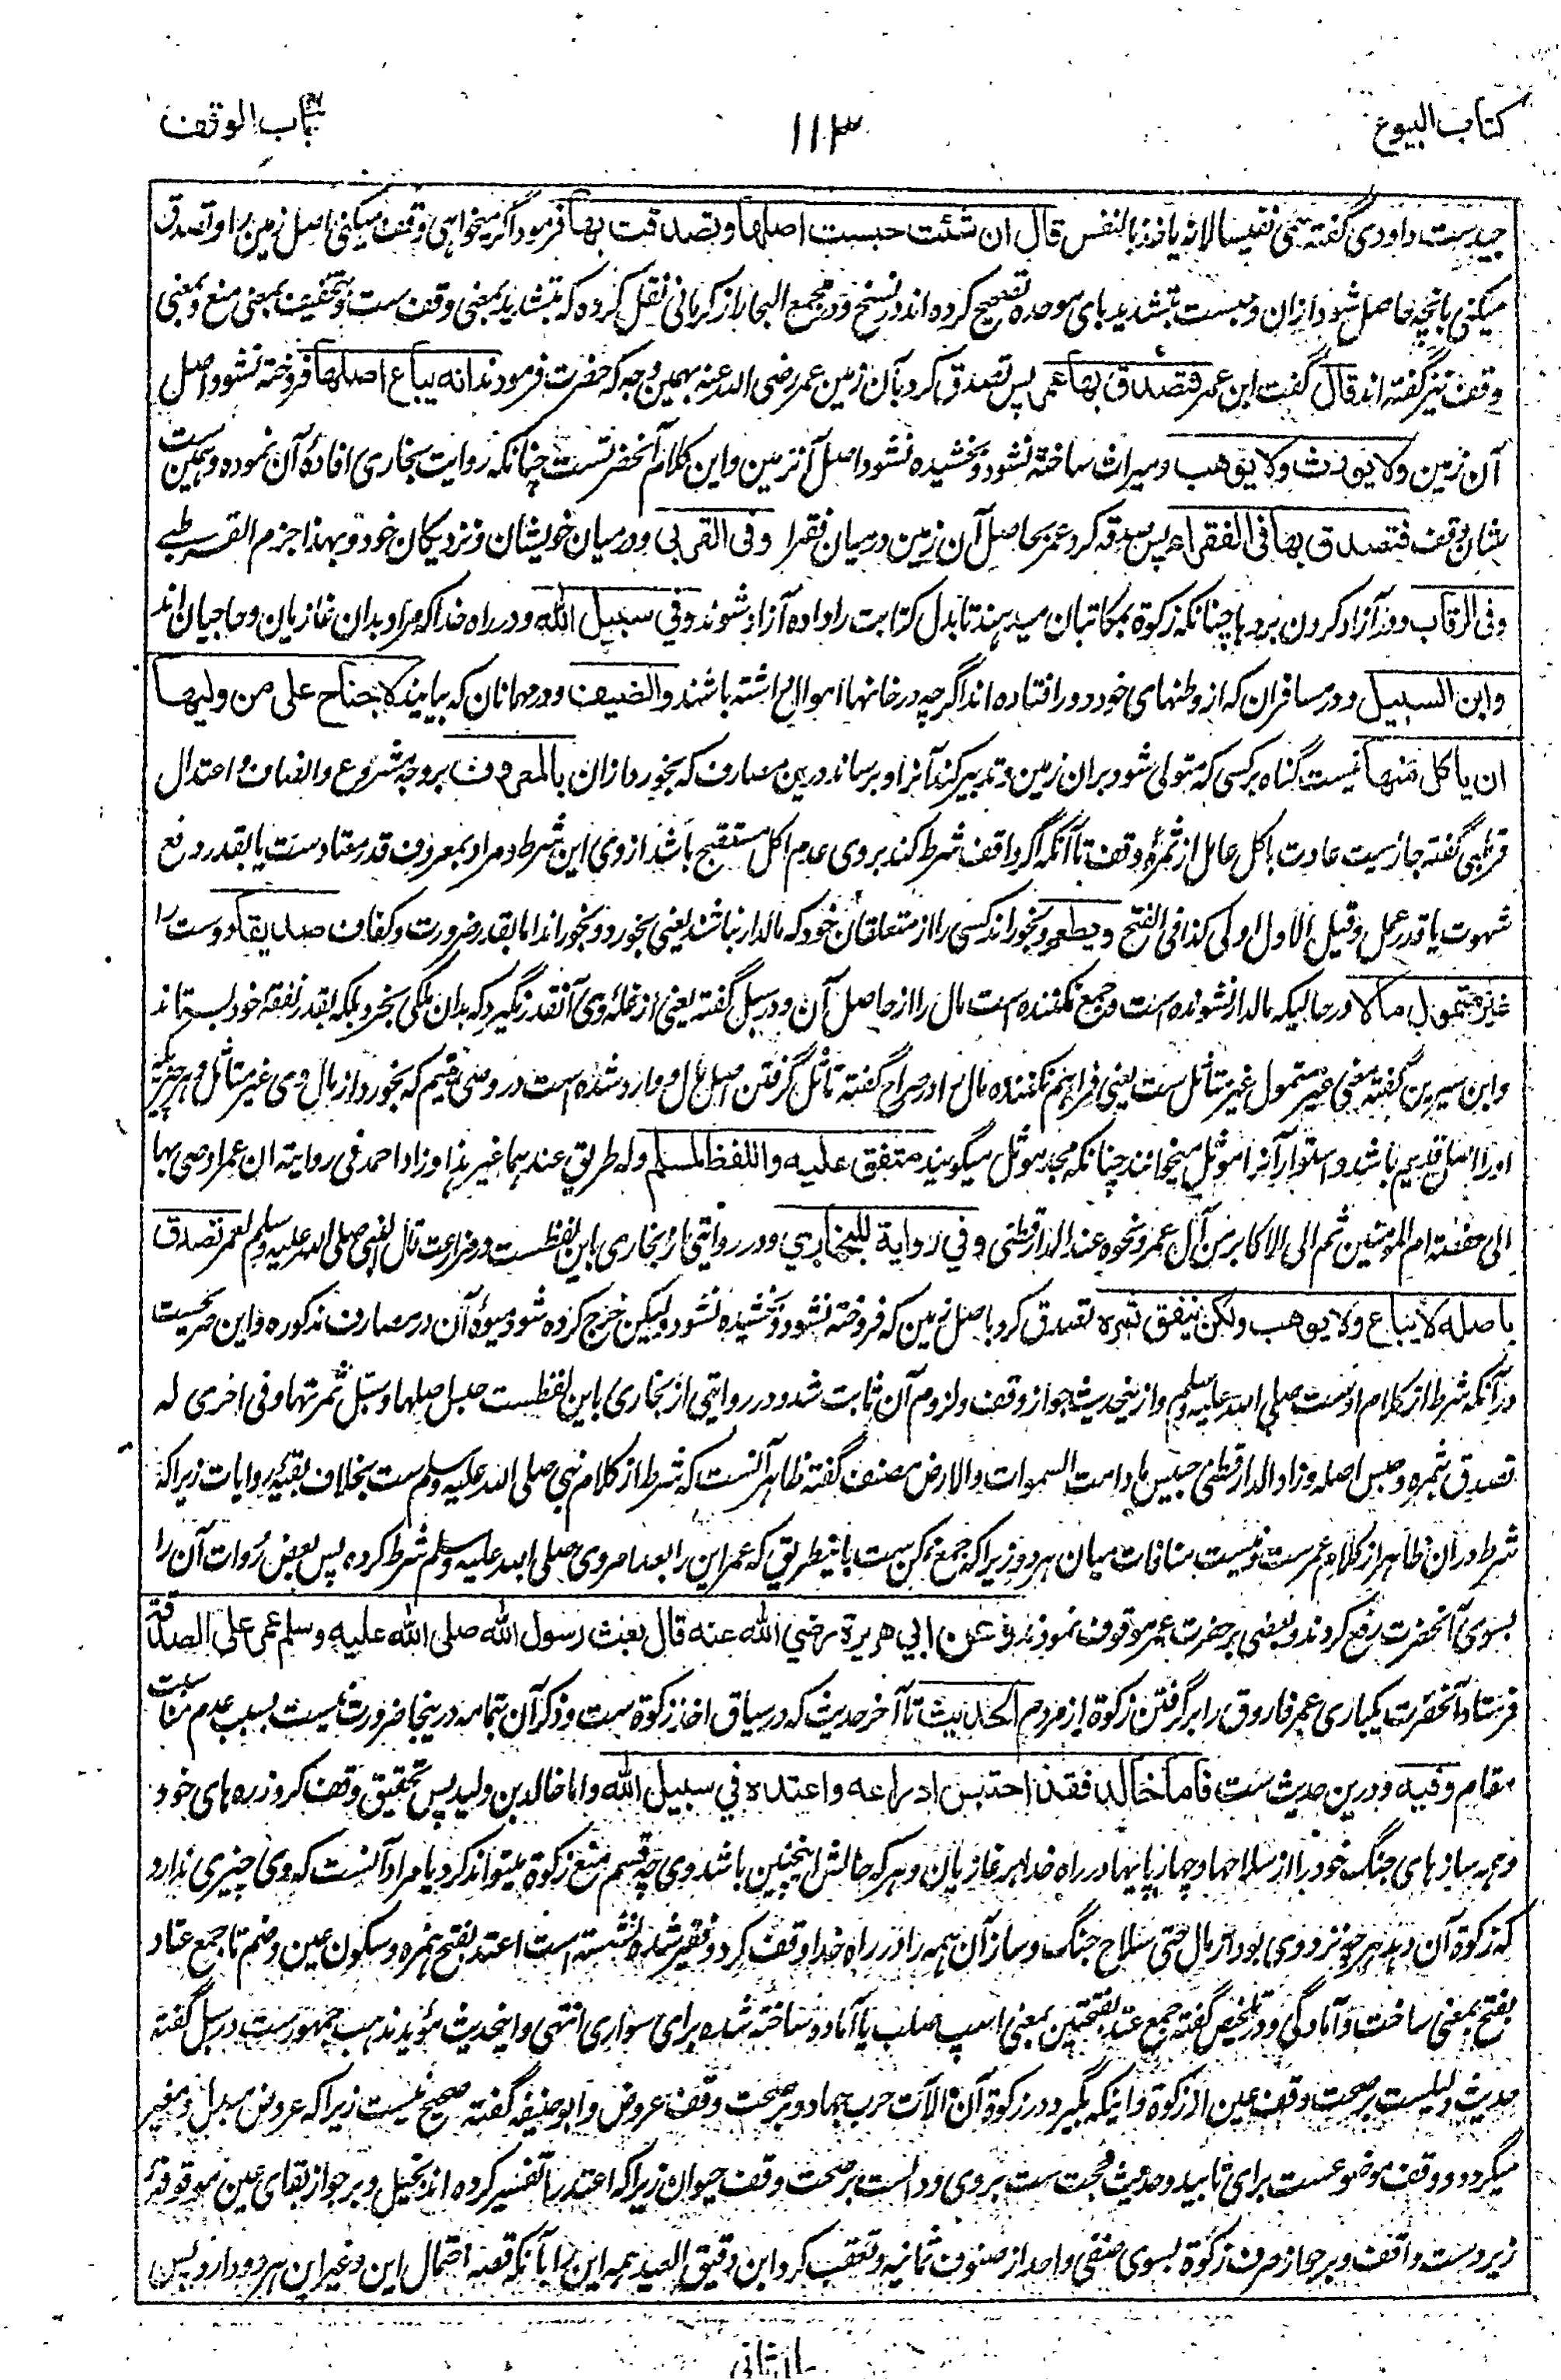 کتاب البیوع ۱۱۳ باب الوقف
جید ست داودی گفته سمی نفیسا لانه یاخذ بالنفس قال ان شئت حبست اصلها وتصدقت بها فرمود اگر میخواهی وقف میکنی اصل زمین را وتصدق
میکنی بانچه حاصل شود ازان وحبست بتشدید بای موحده تصحیح کرده اند در نسخ ودر مجمع البحار از کرمانی نقل کرده که بتشدید بمعنی وقف ست وبتخفیف بمعنی منع وبمعنی
وقف نیز گفته اند قال گفت ابن عمر فتصدق بها عمر پس تصدق کرد بآن زمین عمر رضی الله عنه بهمین وجه که حضرت فرمودند انه یباع اصلها فروخته نشود اصل
آن زمین ولا یورث ولا یوهب ومیراث ساخته نشود وبخشیده نشود اصل آنزمین واین کلام آنحضرتست چنانکه روایت بخاری افادهٔ آن نموده وهمین ست
شان وقف فتصدق بها فی الفقراء پس صدقه کرد عمر بحاصل آن زمین درمیان فقرا وفی القربی ودرمیان خویشان ونزدیکان خود وبهذا جزم القرطبی
وفی الرقاب ودر آزاد کردن بردها چنانکه زکوة بمکاتبان میدهند تا بدل کتابت را داده آزاد شوند وفی سبیل الله ودر راه خدا که مراد بدان غازیان وحاجیان اند
وابن السبیل ودر مسافران که از وطنهای خود دور افتاده اند اگرچه در خانها اموال داشته باشند والضیف ودر مهمانان که بیایند لا جناح علی من ولیها
ان یاکل منها نیست گناه بر کسی که متولی شود بران زمین وتدبیر کند آنرا وبرساند درین مصارف که بخورد ازان بالمعروف بر وجه مشروع وانصاف واعتدال
قرطبی گفته جاریست عادت باکل عامل از ثمرهٔ وقف تا آنکه اگر واقف شرط کند بر وی عدم اکل مستقبح باشد از وی این شرط ومراد بمعروف قدر معتاد ست یا بقدر دفع
شهوت یا قدر عمل وقیل الاول اولی کذا فی الفتح ویطعم وبخوراند کسی را از متعلقان خود که مالدار نباشند یعنی بخورد وبخوراند اما بقدر ضرورت وکفاف صدیقا دوست را
غیر متمول مالا در حالیکه مالدار نشونده است وجمع نکننده است مال را از حاصل آن ودر سبل گفته یعنی از غلهٔ وی آنقدر نگیرد که بدان ملکی بخرد بلکه بقدر نفقه خود بستاند
وابن سیرین گفته معنی غیر متمول غیر متاثل ست یعنی فراهم نکننده مال را در صراح گفته تاثل گرفتن اصل مال ووارد شده است در وصی یتیم که بخورد از مال وی غیر متاثل وهر چیزیکه
اورا اصل قدیم باشد واستوار آنرا موثل میخوانند چنانکه مجد موثل میگویند متفق علیه واللفظ لمسلم وله طریق عندهما غیر هذا وزاد احمد فی روایته ان عمر اوصی بها
الی حفصة ام المؤمنین ثم الی الاکابر من آل عمر ونحوه عند الدارقطنی وفی روایة للبخاری ودر روایتی از بخاری باین لفظست در مزارعت قال النبی صلی الله علیه وسلم لعمر تصدق
باصله لا یباع ولا یوهب ولکن ینفق ثمره تصدق کرد باصل زمین که فروخته نشود وبخشیده نشود ولیکن خرج کرده شود میوهٔ آن در مصارف مذکوره واین صریحست
در آنکه شرط از کلام اوست صلی الله علیه وسلم وازینحدیث جواز وقف ولزوم آن ثابت شد ودر روایتی از بخاری باین لفظست حبس اصلها وسبل ثمرتها وفی اخری له
تصدق بثمره وحبس اصله وزاد الدارقطنی حبیس ما دامت السموات والارض مصنف گفته ظاهر آنست که شرط از کلام نبی صلی الله علیه وسلم ست بخلاف بقیهٔ روایات زیرا که
شرط در آن ظاهرا از کلام عمر ست ونیست منافات میان هر دو زیرا که جمع ممکن ست باینطریق که عمر این را بعد امر وی صلی الله علیه وسلم شرط کرده پس بعض روات آن را
بسوی آنحضرت رفع کردند وبعضی بر حضرت عمر موقوف نمودند وعن ابی هریرة رضی الله عنه قال بعث رسول الله صلی الله علیه وسلم عمر علی الصدقة
فرستاد آنحضرت یکباری عمر فاروق را بر گرفتن زکوة از مردم الحدیث تا آخر حدیث که در سیاق اخذ زکوة ست وذکر آن بتمامه درینجا ضرورت نیست بسبب عدم مناسبت
مقام وفیه ودرین حدیث ست فاما خالد فقد احتبس ادراعه واعتده فی سبیل الله واما خالد بن ولید پس تحقیق وقف کرد زره های خود
وهمه سازهای جنگ خود را از سلاحها وچهارپایها در راه خدا بر غازیان وهر که حالش اینچنین باشد وی چه قسم منع زکوة میتواند کرد یا مراد آنست که وی چیزی ندارد
که زکوة آن دهد هر چه نزد وی بود از مال حتی سلاح جنگ وساز آن همه را در راه خدا وقف کرد وفقیر شده نشسته است اعتد بفتح همزه وسکون عین وضم تا جمع عتاد
بفتح بمعنی ساخت وآمادگی ودر تلخیص گفته جمع عتد بفتحتین بمعنی اسپ صلب یا آماده وساخته شده برای سواری انتهی واینحدیث مؤید مذهب جمهورست در سبل گفته
حدیث دلیلست بر صحت وقف عین از زکوة واینکه بگیرد در زکوة آن آلات حرب جهاد وبر صحت وقف عروض وابوحنیفه گفته صحیح نیست زیرا که عروض مبدل ومغیر
میگردد ووقف موضوعست برای تابید وحدیث حجت ست بر وی ودالست بر صحت وقف حیوان زیرا که اعتد را تفسیر کرده اند بخیل وبر جواز بقای عین موقوفه
زیر دست واقف وبر جواز صرف زکوة بسوی صنفی واحد از صنوف ثمانیه وتعقب کرد ابن دقیق العید همه این را بآنکه قصه احتمال این وغیر این هر دو دارد پس